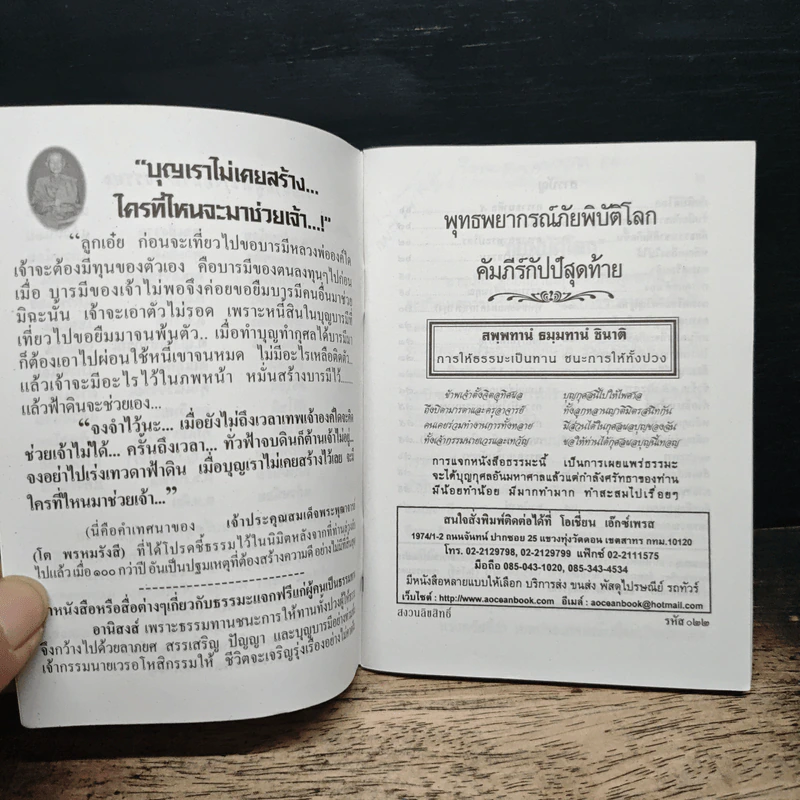 “บุญเราไม่เคยสร้าง...
ใครที่ไหนจะมาช่วยเจ้า...!”
“ลูกเอ๋ย ก่อนจะเที่ยวไปขอบารมีหลวงพ่อองค์ใด
เจ้าจะต้องมีทุนของตัวเอง คือบารมีของตนลงทุนๆไปก่อน
เมื่อ บารมีของเจ้าไม่พอจึงค่อยขอยืมบารมีคนอื่นมาช่วย
มิฉะนั้น เจ้าจะเอาตัวไม่รอด เพราะหนี้สินในบุญบารมีที่
เที่ยวไปขอยืมมาจนพ้นตัว.. เมื่อทำบุญทำกุศลได้บารมีมา
ก็ต้องเอาไปผ่อนใช้หนี้เขาจนหมด ไม่มีอะไรเหลือติดตัว..
แล้วเจ้าจะมีอะไรไว้ในภพหน้า หมั่นสร้างบารมีไว้......
แล้วฟ้าดินจะช่วยเอง...
“จงจำไว้นะ... เมื่อยังไม่ถึงเวลาเทพเจ้าองค์ใดจะคิด
ช่วยเจ้าไม่ได้... ครั้นถึงเวลา... ทั่วฟ้าจบดินก็ต้านเจ้าไม่อยู่...
จงอย่าไปเร่งเทวดาฟ้าดิน เมื่อบุญเราไม่เคยสร้างไว้เลย จะมี
ใครที่ไหนมาช่วยเจ้า...”
(นี่คือคำเทศนาของ เจ้าประคุณสมเด็จพระพุฒาจารย์
(โต พรหมรังสี) ที่ได้โปรดชี้ธรรมไว้ในนิมิตหลังจากที่ท่านล่วงลับ
ไปแล้วเมื่อ ๑๐๐ กว่าปี อันเป็นปฐมเหตุที่ต้องสร้างความดี
หนังสือหรือสื่อต่างๆเกี่ยวกับธรรมะแจกฟรีแก่ผู้คนเป็นธรรมทาน
อานิสงส์ เพราะธรรมทานชนะการให้ทานทั้งปวง
จึงกว้างไปด้วยลาภยศ สรรเสริญ ปัญญา และบุญบารมี
เจ้ากรรมนายเวรอโหสิกรรมให้ ชีวิตจะเจริญรุ่งเรือง
พุทธพยากรณ์ภัยพิบัติโลก
คัมภีร์กัปป์สุดท้าย
สพฺพทานํ ธมฺมทานํ ชินาติ
การให้ธรรมะเป็นทาน ชนะการให้ทั้งปวง
ข้าพเจ้าตั้งจิตอุทิศผล บุญกุศลนี้ไปให้ไพศาล
ถึงบิดามารดาและครูอาจารย์ ทั้งลูกหลานญาติมิตรสนิทกัน
คนเคยร่วมทำงานการทั้งหลาย มีส่วนได้ในกุศลผลบุญของฉัน
ทั้งเจ้ากรรมนายเวรและเทวัญ ขอให้ท่านได้กุศลผลบุญนี้เทอญ
การแจกหนังสือธรรมะนี้ เป็นการเผยแพร่ธรรมะ
จะได้บุญกุศลอันมหาศาลแล้วแต่กำลังศรัทธาของท่าน
มีน้อยทำน้อย มีมากทำมาก ทำสะสมไปเรื่อยๆ
สนใจสั่งพิมพ์ติดต่อได้ที่ โอเชี่ยน เอ็กซ์เพรส
1974/1-2 ถนนจันทน์ ปากซอย 25 แขวงทุ่งวัดดอน เขตสาทร กทม.10120
โทร. 02-2129798, 02-2129799 แฟ็กซ์ 02-2111575
มือถือ 085-043-1020, 085-343-4534
มีหนังสือหลายแบบให้เลือก บริการส่ง ขนส่ง พัสดุไปรษณีย์ รถทัวร์
เว็บไซต์ : http://www.aoceanbook.com อีเมล์ : aoceanbook@hotmail.com
สงวนลิขสิทธิ์ รหัส ๐๒๒